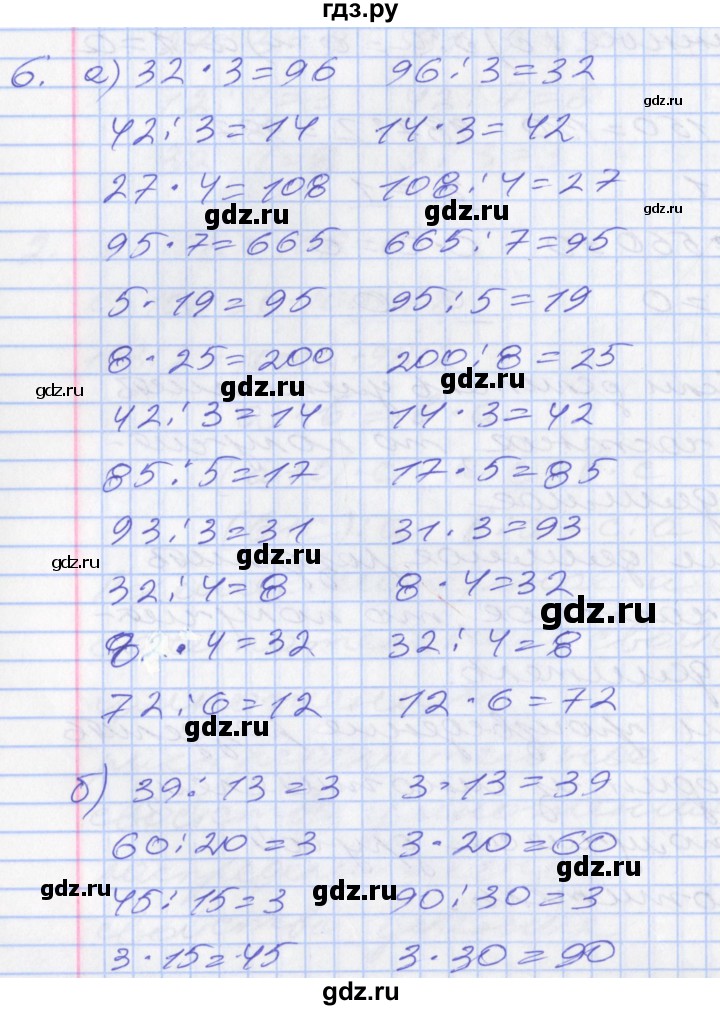 гдз.ру
6. а) 32 · 3 = 96 96 : 3 = 32
gdz.ru
42 : 3 = 14 14 · 3 = 42
27 · 4 = 108 108 : 4 = 27
gdz.ru gdz.ru gdz.ru
95 · 7 = 665 665 : 7 = 95
5 · 19 = 95 95 : 5 = 19
8 · 25 = 200 200 : 8 = 25
gdz.ru gdz.ru gdz.ru
42 : 3 = 14 14 · 3 = 42
85 : 5 = 17 17 · 5 = 85
93 : 3 = 31 31 · 3 = 93
gdz.ru gdz.ru
32 : 4 = 8 8 · 4 = 32
gdz.ru
8 · 4 = 32 32 : 4 = 8
gdz.ru
72 : 6 = 12 12 · 6 = 72
gdz.ru
б) 39 : 13 = 3 3 · 13 = 39
60 : 20 = 3 3 · 20 = 60
gdz.ru
gdz.ru gdz.ru
45 : 15 = 3 90 : 30 = 3
3 · 15 = 45 3 · 30 = 90
gdz.ru